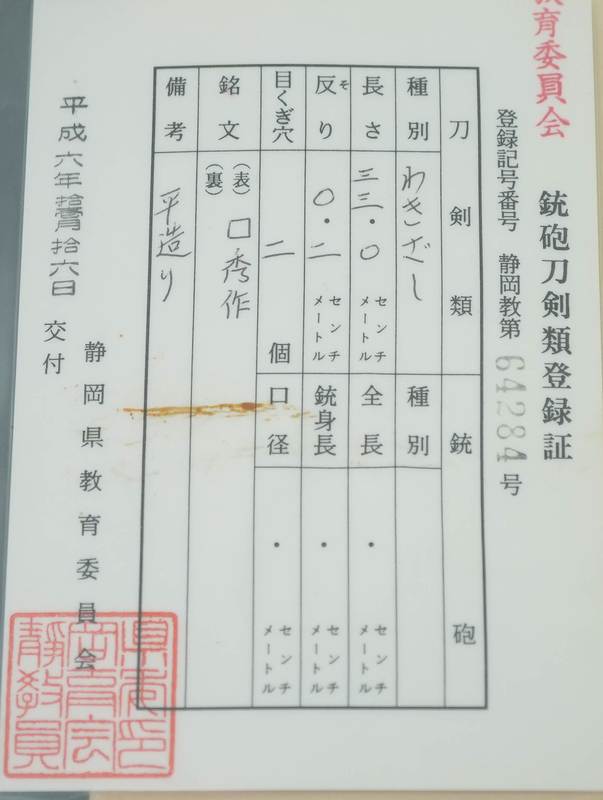 育委員会
銃砲刀剣類登録証
登録記号番号 静岡教第64284号
刀剣類
銃砲
種別 わきざし
種別
長さ 三三・〇 センチメートル
全長 ・ センチメートル
反り そ 〇・二 センチメートル
銃身長 ・ センチメートル
目くぎ穴 二 個
口径 ・ センチメートル
銘文 (表) 口秀作
(裏)
備考 平造り
平成六年 月拾六日 交付
静岡県教育委員会